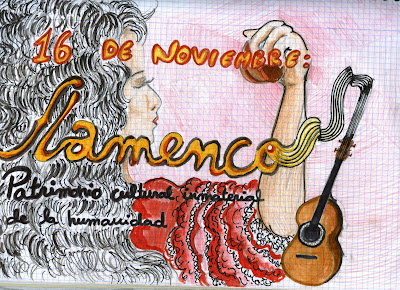 16 DE NOVIEMBRE:
flamenco
Patrimonio cultural inmaterial
de la humanidad